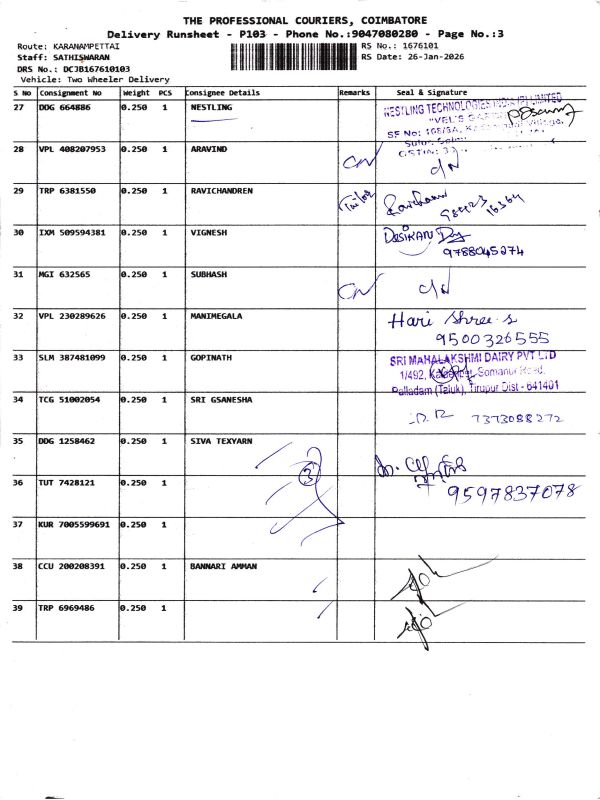 THE PROFESSIONAL COURIERS, COIMBATORE
Delivery Runsheet - P103 - Phone No.:9047080280 - Page No.:3
Route: KARANAMPETTAI
RS No.: 1676101
Staff: SATHISWARAN
RS Date: 26-Jan-2026
DRS No.: DCJB167610103
Vehicle: Two Wheeler Delivery
S No Consignment No Weight PCS Consignee Details Remarks Seal & Signature
27 DDG 664886 0.250 1 NESTLING
NESTLING TECHNOLOGIES
28 VPL 408207953 0.250 1 ARAVIND CN C/N
29 TRP 6381550 0.250 1 RAVICHANDREN
98423 16364
30 IXM 509594381 0.250 1 VIGNESH DESIKAN
9788045274
31 MGI 632565 0.250 1 SUBHASH CN C/N
32 VPL 230289626 0.250 1 MANIMEGALA Hari Shree.s
9500326555
33 SLM 387481099 0.250 1 GOPINATH SRI MAHALAKSHMI DAIRY PVT LTD
1/492, Somanur Road,
Palladam (Taluk), Tirupur Dist - 641401
34 TCG 51002054 0.250 1 SRI GSANESHA
7373088272
35 DDG 1258462 0.250 1 SIVA TEXYARN
36 TUT 7428121 0.250 1 3
9597837078
37 KUR 7005599691 0.250 1
38 CCU 200208391 0.250 1 BANNARI AMMAN
39 TRP 6969486 0.250 1